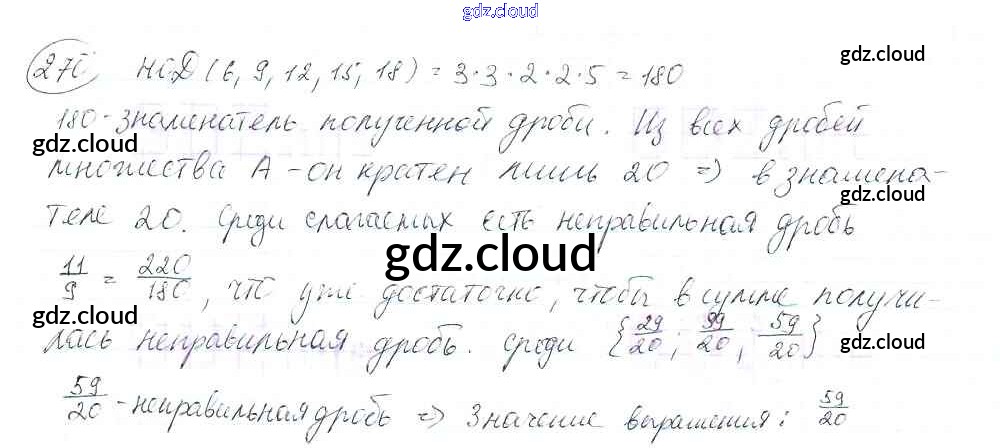 gdz.cloud
270, НОД (6, 9, 12, 15, 18) = 3·3·2·2·5 = 180
gdz.cloud
180 - знаменатель полученной дроби. Из всех дробей
gdz.cloud
множества А - он кратен лишь 20 => в знамена-
gdz.cloud
теле 20. Среди слагаемых есть неправильная дробь
gdz.cloud
11/9 = 220/180, что уже достаточно, чтобы в сумме получи-
gdz.cloud
лась неправильная дробь. Среди {29/20; 39/20; 59/20}
gdz.cloud
59/20 - неправильная дробь => Значение выражения: 59/20
gdz.cloud